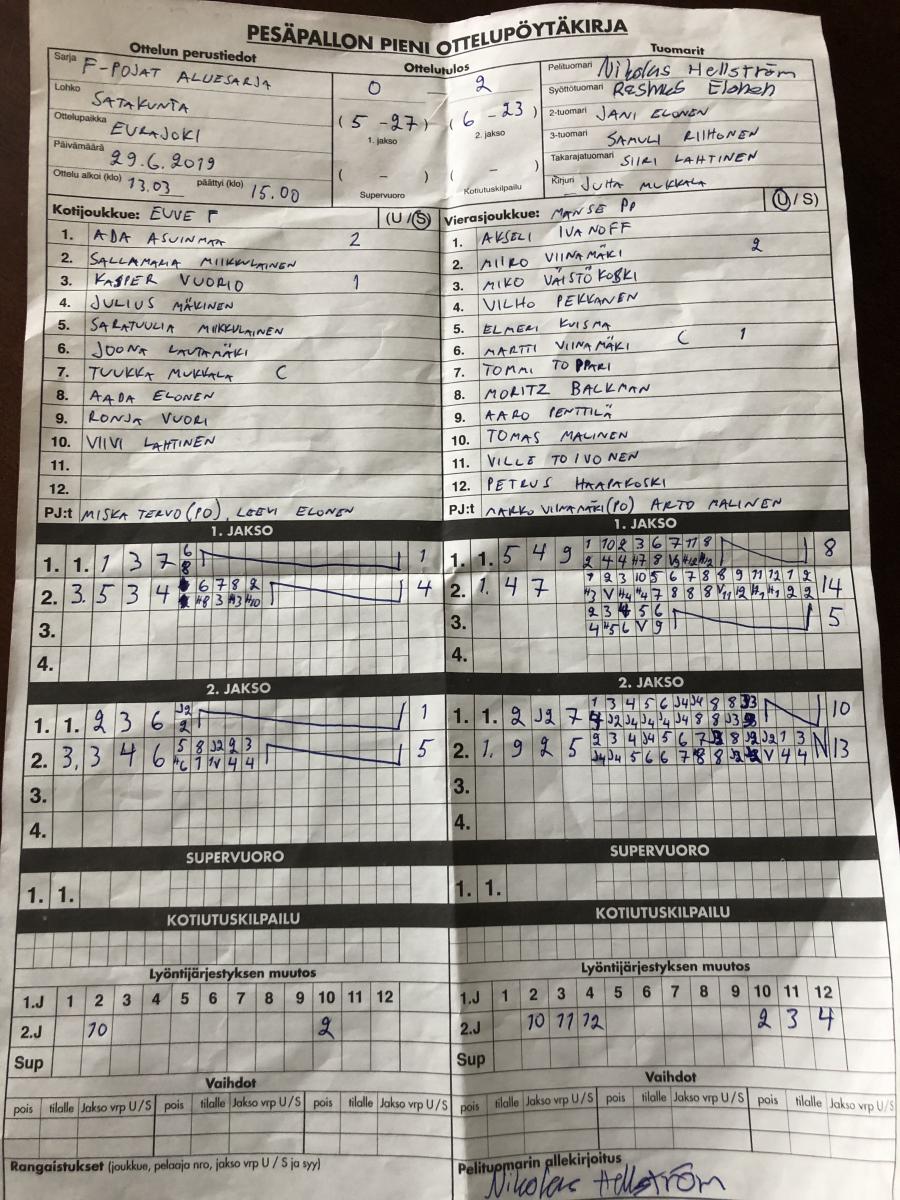 PESÄPALLON PIENI OTTELUPÖYTÄKIRJA
Ottelun perustiedot
Sarja F-POJAT ALUESARJA
Lohko SATAKUNTA
Ottelupaikka EURAJOKI
Päivämäärä 29.6.2019
Ottelu alkoi (klo) 13.03 päättyi (klo) 15.00
Ottelutulos
0 – 2
(5 - 27) (6 - 23)
1. jakso 2. jakso
( - ) ( - )
Supervuoro Kotiutuskilpailu
Tuomarit
Pelituomari Nikolas Hellström
Syöttötuomari Rasmus Elonen
2-tuomari JANI ELONEN
3-tuomari SAMULI RIIHONEN
Takarajatuomari SIIRI LAHTINEN
Kirjuri JUHA MUKKALA
Kotijoukkue: EUVE F (U / S)
1. ADA ASUINMAA 2
2. SALLAMARIA MIIKKULAINEN
3. KASPER VUORIO 1
4. JULIUS MÄKINEN
5. SARATUULIA MIIKKULAINEN
6. JOONA LAUTAMÄKI
7. TUUKKA MUKKALA C
8. AADA ELONEN
9. RONJA VUORI
10. VIIVI LAHTINEN
11.
12.
PJ:t MISKA TERVO (PO), LEEVI ELONEN
Vierasjoukkue: MANSE PP (U / S)
1. AKSELI IVANOFF
2. MIIRO VIINAMÄKI 2
3. MIKO VÄISTÖKOSKI
4. VILHO PEKKANEN
5. ELMERI KUISMA
6. MARTTI VIINAMÄKI C 1
7. TOMMI TOPPARI
8. MORITZ BACKMAN
9. AARO PENTTILÄ
10. TOMAS MALINEN
11. VILLE TOIVONEN
12. PETRUS HAAPAKOSKI
PJ:t MARKO VIINAMÄKI (PO) ARTO MALINEN
1. JAKSO
1. 1. 1 3 7 6 1
8
2. 3. 5 3 4 6 7 8 2 4
3.
4.
1. JAKSO
1. 1. 5 4 9 1 10 2 3 6 7 11 8 8
2. 1. 4 7 1 2 3 10 5 6 7 8 8 9 11 12 1 2 14
3. 2 3 4 5 6 5
4 5 6 V 9
4.
2. JAKSO
1. 1. 2 3 6 J2 1
2
2. 3. 3 4 6 5 8 J2 2 3 5
3.
4.
2. JAKSO
1. 1. 2 J2 7 1 3 4 5 6 J4 J4 8 8 10
2. 1. 9 2 5 2 3 4 J4 5 6 7 13
3.
4.
SUPERVUORO
1. 1.
SUPERVUORO
1. 1.
KOTIUTUSKILPAILU
KOTIUTUSKILPAILU
Lyöntijärjestyksen muutos
1.J 1 2 3 4 5 6 7 8 9 10 11 12
2.J 10 2
Sup
Lyöntijärjestyksen muutos
1.J 1 2 3 4 5 6 7 8 9 10 11 12
2.J 10 11 12 2 3 4
Sup
Vaihdot
pois tilalle Jakso vrp U / S pois tilalle Jakso vrp U / S pois tilalle Jakso vrp U / S
Vaihdot
pois tilalle Jakso vrp U / S pois tilalle Jakso vrp U / S pois tilalle Jakso vrp U / S
Rangaistukset (joukkue, pelaaja nro, jakso vrp U / S ja syy)
Pelituomarin allekirjoitus
Nikolas Hellström